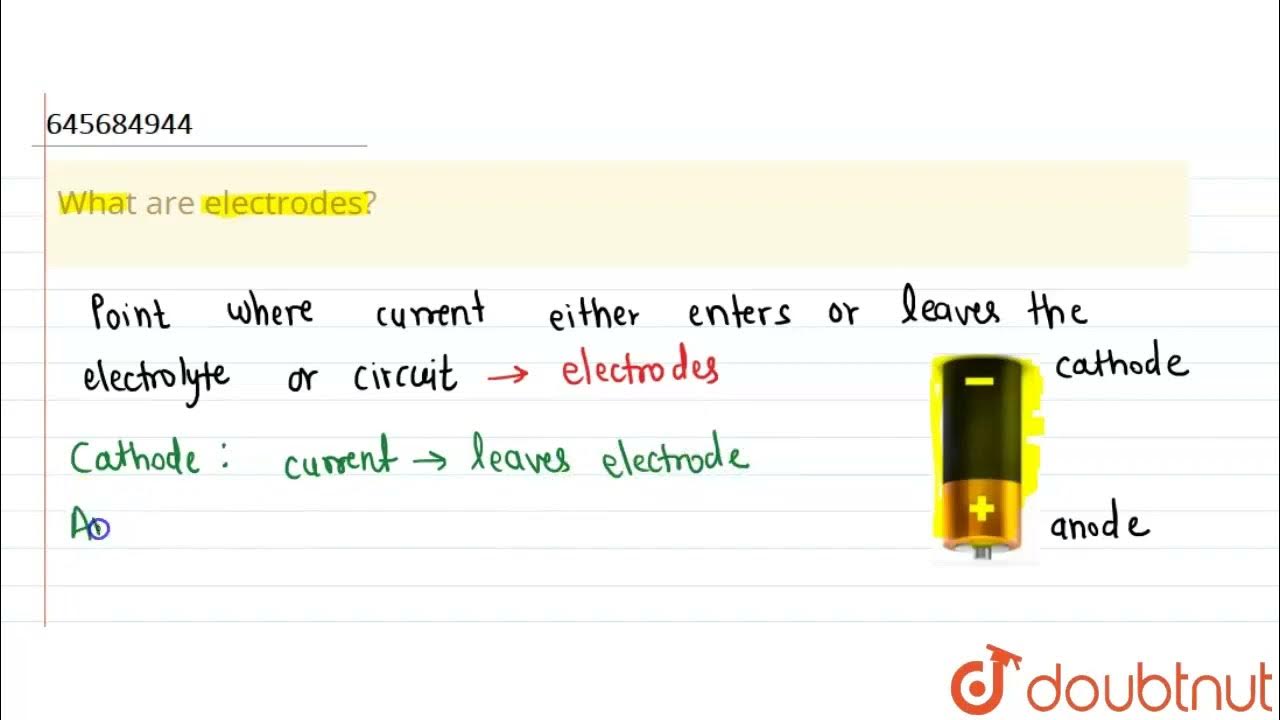 645684944
What are electrodes?
Point where current either enters or leaves the
electrolyte or circuit → electrodes
Cathode : current → leaves electrode
An
− cathode
+ anode
doubtnut